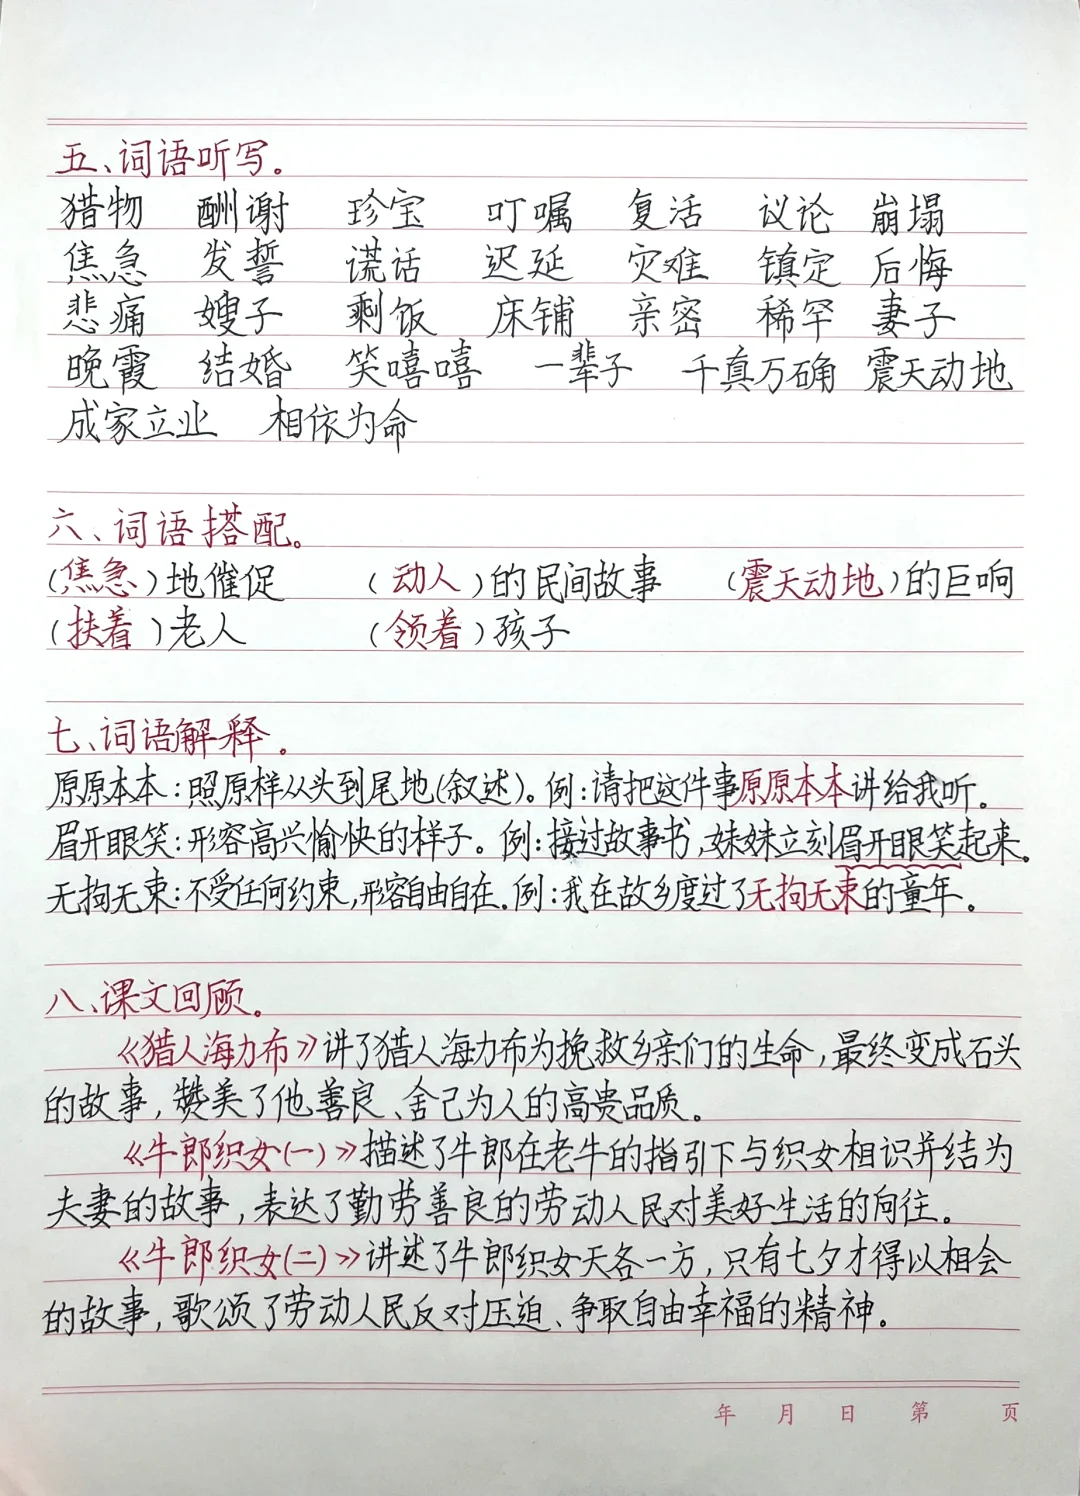 五、词语听写。
猎物 酬谢 珍宝 叮嘱 复活 议论 崩塌
焦急 发誓 谎话 迟延 灾难 镇定 后悔
悲痛 嫂子 剩饭 床铺 亲密 稀罕 妻子
晚霞 结婚 笑嘻嘻 一辈子 千真万确 震天动地
成家立业 相依为命
六、词语搭配。
(焦急)地催促 (动人)的民间故事 (震天动地)的巨响
(扶着)老人 (领着)孩子
七、词语解释。
原原本本:照原样从头到尾地(叙述)。例:请把这件事原原本本讲给我听。
眉开眼笑:形容高兴愉快的样子。例:接过故事书,妹妹立刻眉开眼笑起来。
无拘无束:不受任何约束,形容自由自在。例:我在故乡度过了无拘无束的童年。
八、课文回顾。
《猎人海力布》讲了猎人海力布为挽救乡亲们的生命,最终变成石头
的故事,赞美了他善良、舍己为人的高贵品质。
《牛郎织女(一)》描述了牛郎在老牛的指引下与织女相识并结为
夫妻的故事,表达了勤劳善良的劳动人民对美好生活的向往。
《牛郎织女(二)》讲述了牛郎织女天各一方,只有七夕才得以相会
的故事,歌颂了劳动人民反对压迫、争取自由幸福的精神。
年 月 日 第 页